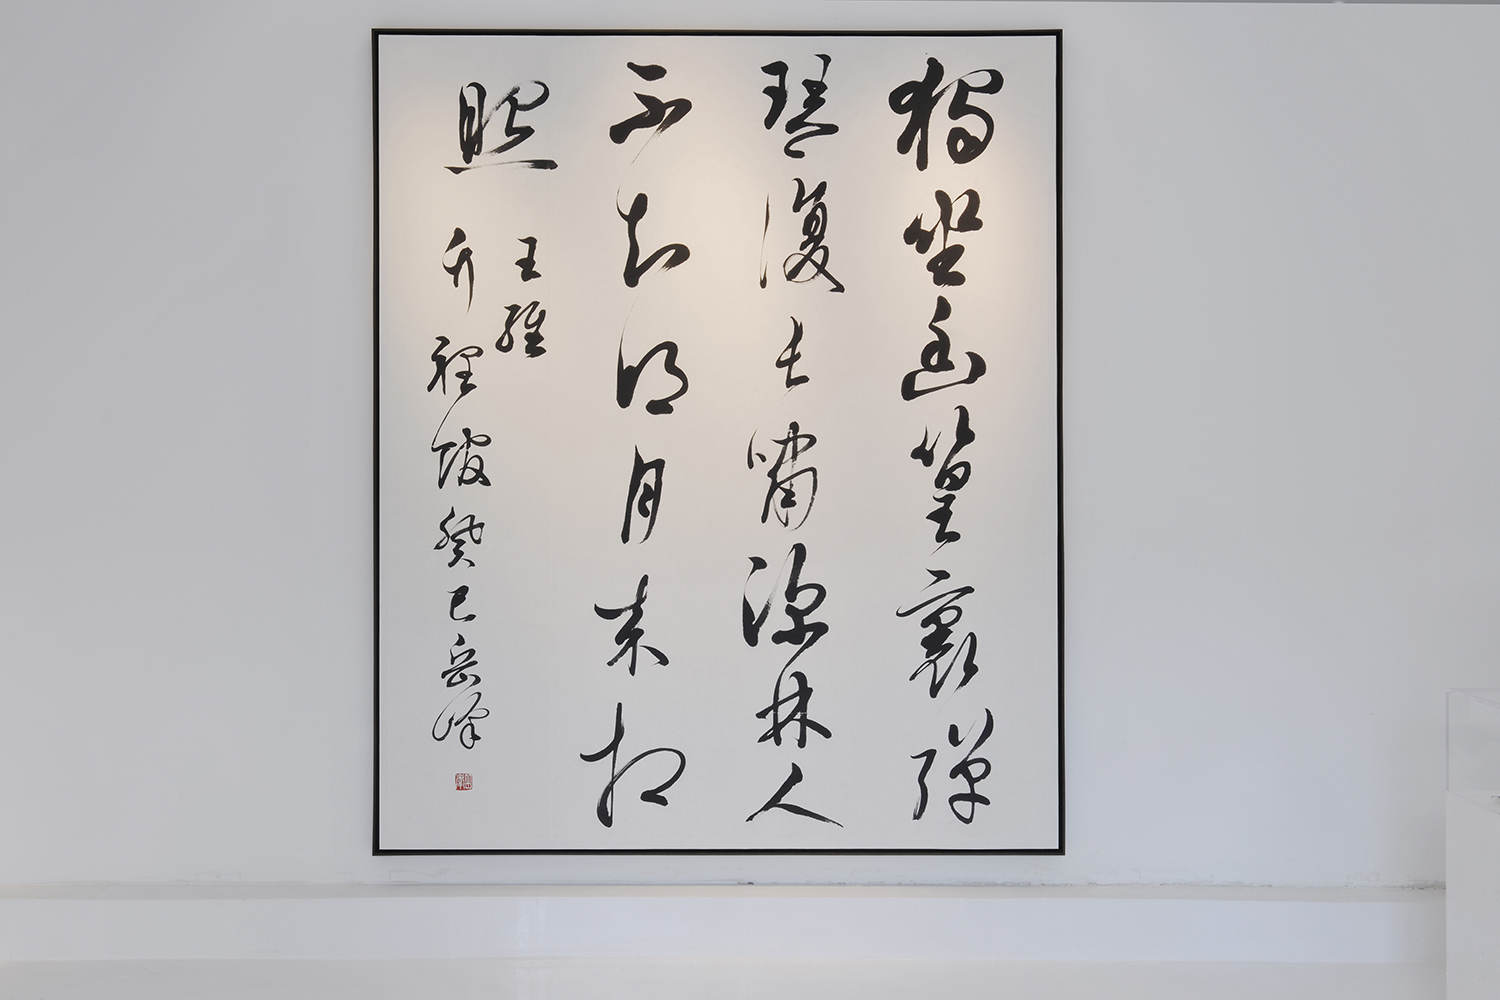 獨坐幽篁裏彈
琴復長嘯深林人
不知明月来相
照
王維
竹裡館癸巳岳峰